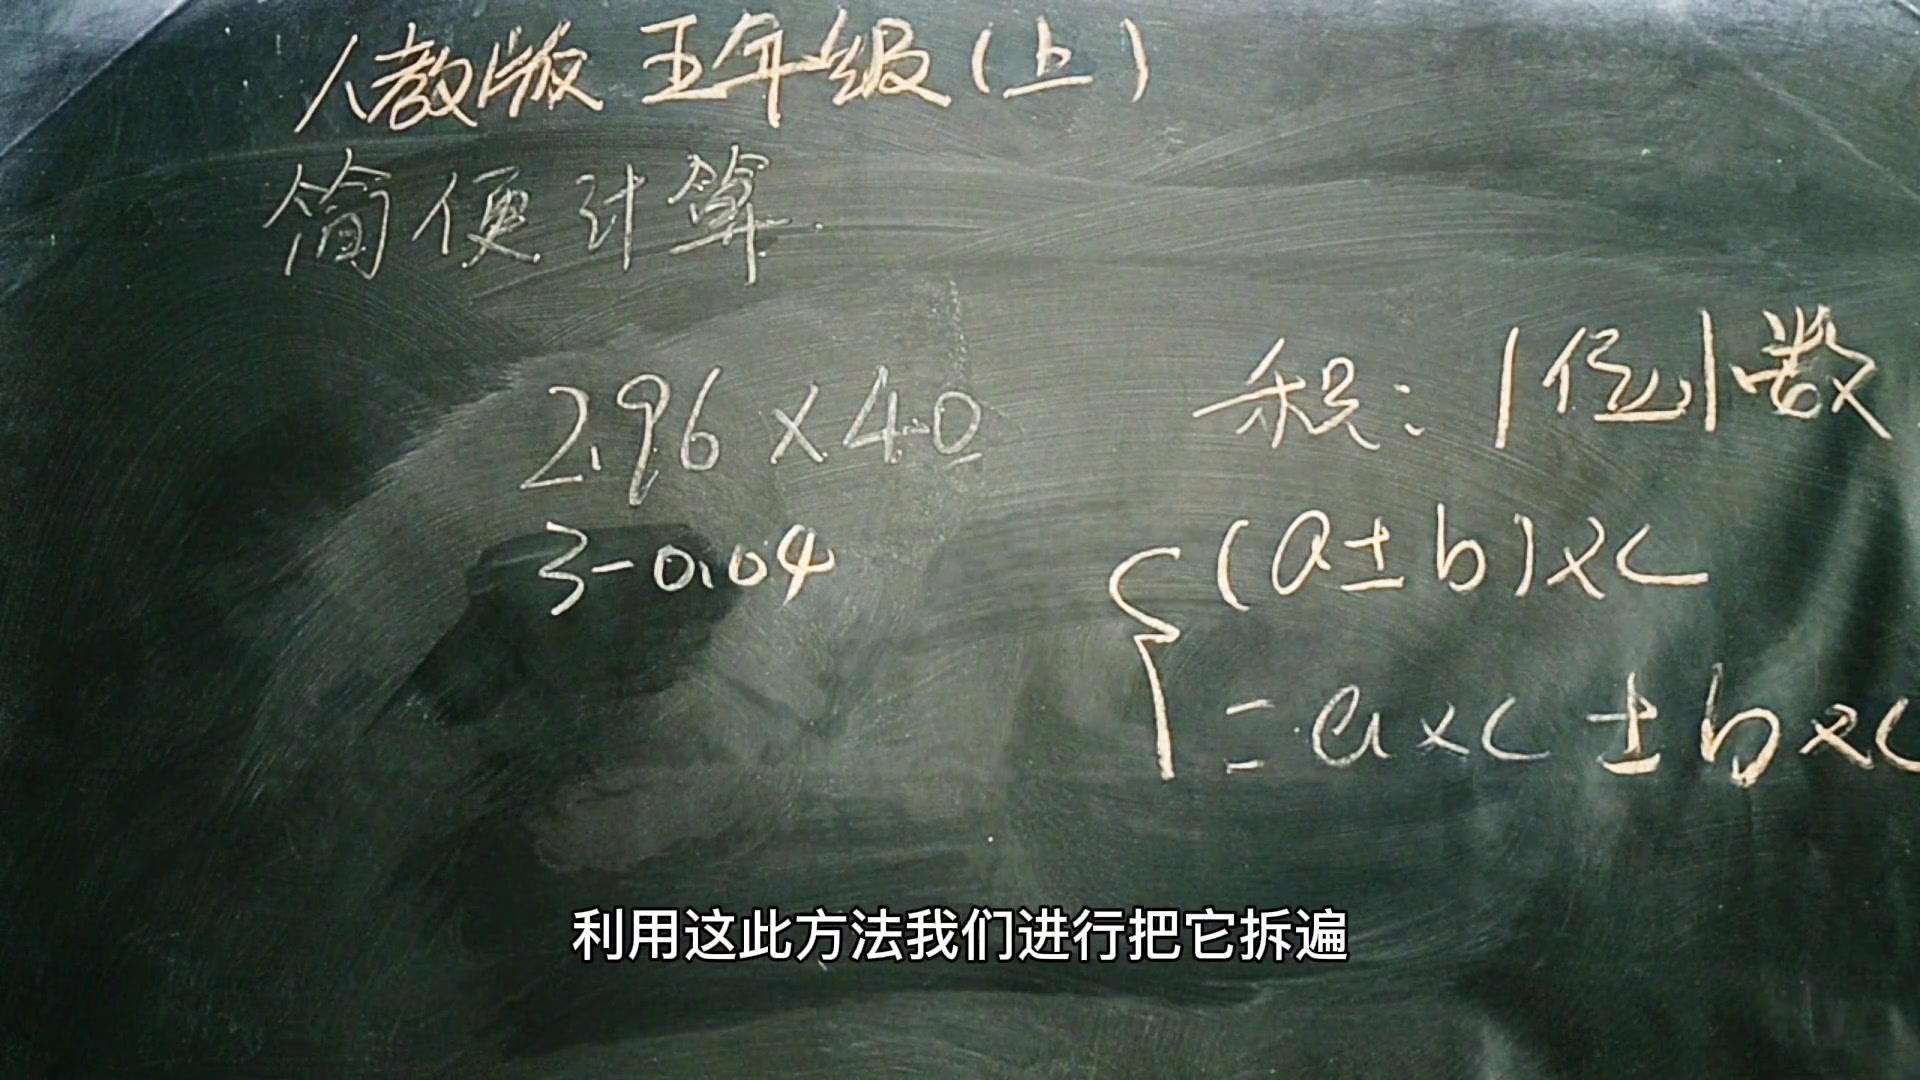 人教版 五年级(上)
简便计算.
2.96×40
积：1位1数
3-0.04
(a±b)×c
=a×c±b×c
利用这此方法我们进行把它拆遍